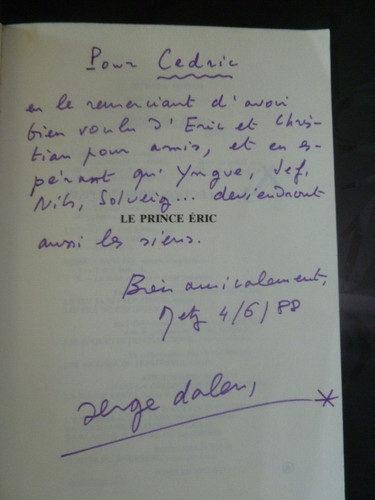 Pour Cedric
en le remerciant d'avoir
bien voulu d'Eric et Chris-
tian pour amis, et en es-
pérant qu'Yngve, Jef,
Nils, Solveig... deviendront
LE PRINCE ÉRIC
aussi les siens.
Bien amicalement,
Metz 4/6/88
serge dalens